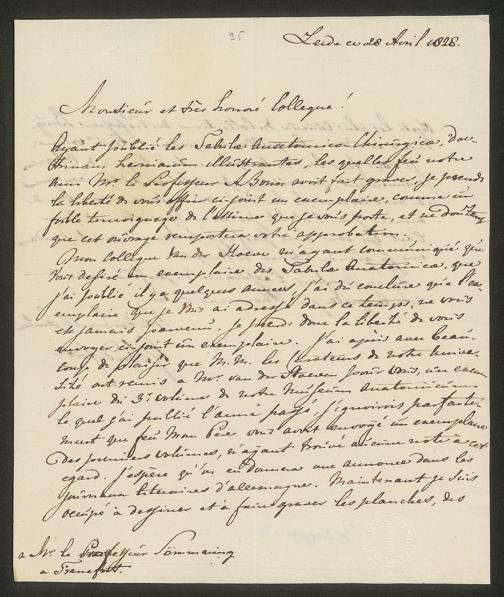 35
Leide ce 28 Avril 1828.
Monsieur et très honoré Collegue!
Ayant publié les Tabulæ Anatomico Chirurgicæ, doc-
trinam herniarum illustrantes, les quelles feu notre
ami Mr. le Professeur A. Bonn avoit fait graver, je prends
la liberté de vous offrir ci joint un exemplaire, comme un
foible temoignage de l'estime que je vous porte, et ne doutant
que cet ouvrage remportera votre approbation.
Mon collegue van der Hoeve m'ayant communiqué que
vous desiré un exemplaire des Tabulæ Anatomicæ, que
j'ai publié il y a quelques annees, j'ai dû conclure que l'ex-
emplaire que je Vous ai adressé dans ce temps, ne vous
est jamais parvenu. Je prends donc la liberté de vous
envoyer ci joint un exemplaire. J'ai apris avec beau-
coup de plaisir que M.M. les Curateurs de notre Univer-
sité ont remis a Mr. van der Hoeven pour Vous, un exem-
plaire du 3e volume de notre Museum Anatomicum
le quel j'ai publié l'anne passé, j'ignorois parfaite-
ment que feu Mon Pere vous avoit envoyé un exemplaire
des premiers volumes, n'ayant trouvé aucune note à cet
egard. J'espère qu'on en donnera une annonce dans les
journaux literaires d'allemagne. Maintenant je suis
occupé a dessiner et a faire graver les planches, des
a Mr. le Professeur Sömmering
a Francfort.